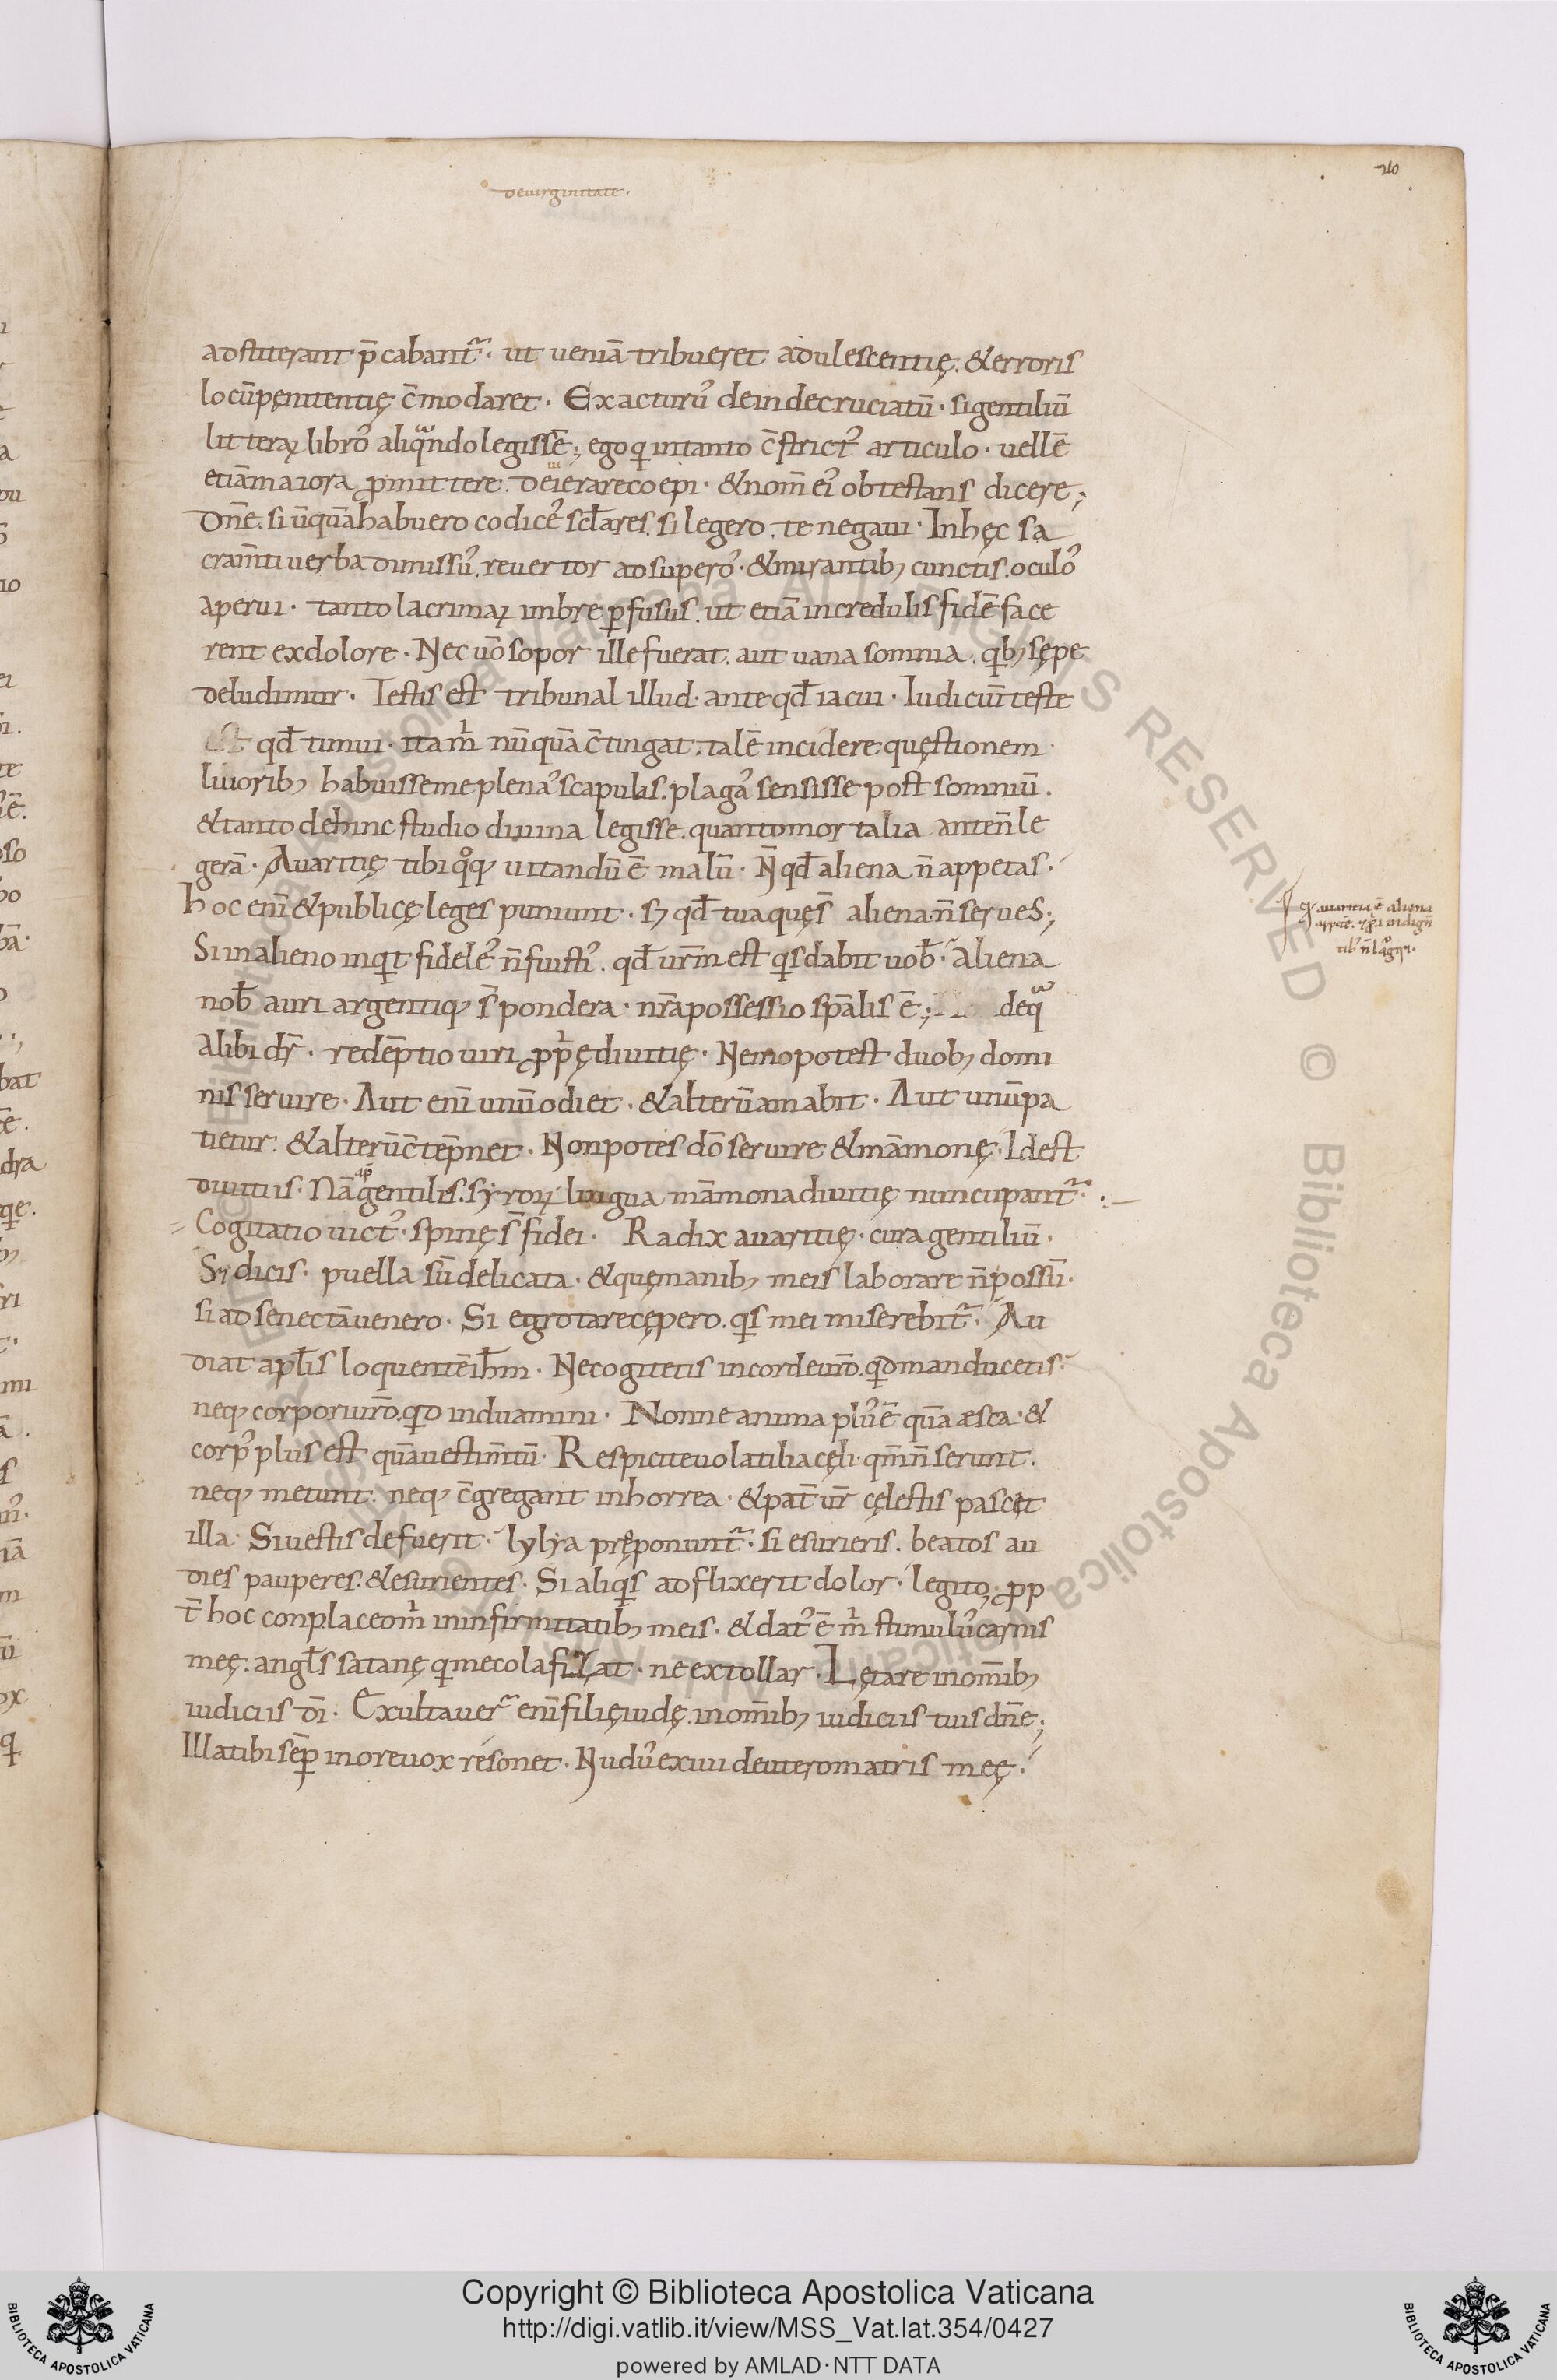 deuirginitate.
210
adstiterant p̄cabant᷑. ut ueniā tribueret adulescentię. &erroris
locū pęnitentię c̄modaret. Exacturꝰ deindecruciatū. sigentiliū
litteraꝝ librꝰ aliqͣndo legissē; ego q intanto c̄strictꝰ articulo. uellē
etiāmaiora ꝓmittere. deierarecoepi. &nom̄ eiꝰ obtestans dicere;
Dn̄e. si ūquā habuero codicęꝰ scl̄ares. si legero. te negaui. Inhęc sa
cram̄ti uerba dimissꝰ. reuertor adsuperꝰ. &mirantibꝫ cunctis. oculꝰ
aperui. tanto lacrimaꝝ imbre ꝑfusus. ut etiā incredulis fidē face
rent exdolore. Nec uō sopor ille fuerat. aut uana somnia. qibꝫ sępe
deludimur. Testis est tribunal illud. ante qd̄ iacui. Iudiciū teste
est qd̄ timui. itam̄ nūquā c̄tingat. talē incidere quęstionem.
liuoribꝫ habuisse me plenaꝰ scapulas. plagaꝰ sensisse post somniū.
&tanto dehinc studio diuina legisse. quanto mortalia anten̄ le
gerā. Auaritię tibi qͦqꝫ uitandū ē malū. N̄ qd̄ aliena n̄ appetas.
hoc enī &publicę leges puniunt. sꝫ qd̄ tua quęs̄ aliena n̄ serues;
Si inalieno inqt fidelꝰ n̄ fuistiꝰ. qd̄ ur̄m est qis dabit uob̄. Aliena
nob̄ auri argentiqꝫ s̄ pondera. nr̄a possessio sp̄alis ē; deqͣ
alibi dr̄. redēptio uiri ꝓprię diuitię. Nemo potest duobꝫ domi
nis seruire. Aut enī unū odiet. &alterū amabit. Aut unū pa
tietur. &alterū c̄tēpnet. Non potes dō seruire &māmonę. Idest
diuitiis. Nā ap̄ gentilis. syroꝝ lingua māmona diuitię nuncupant᷑.
Cogitatio uictꝰ. spinę s̄ fidei. Radix auaritię. cura gentiliū.
Sꝫ dicis. puella sū delicata. &quę manibꝫ meis laborare n̄ possū.
si ad senectā uenero. Si egrotare cępero. qis mei miserebit᷑. Au
diat apl̄is loquentē ih̄m. Ne cogitetis incorde ur̄o. qd manducetis.
neqꝫ corpori ur̄o. qd induamini. Nonne anima plꝰ ē quā æsca. &
corpꝰ plus est quā uestim̄tū. Respicite uolatilia cęli. qm̄ n̄ serunt.
neqꝫ metunt. neqꝫ c̄gregant inhorrea. &pat̄ ur̄ cęlestis pascet
illa. Si uestis defuerit. lylia pręponunt᷑. si esurieris. beatos au
dies pauperes. &esurientes. Si aliqis adflixerit dolor. legito; ꝓp
t̄ hoc conplaceo m̄ in infirmitatibꝫ meis. &datꝰ ē m̄ stimulꝰ carnis
meę. angl̄s satanę q me colafizat. ne extollar. Lętare inom̄ibꝫ
iudiciis dī. Exultauer᷑ enī filię iudę. inom̄ibꝫ iudiciis tuis dn̄e;
Illa tibi sēꝑ inore uox resonet. Nudꝰ exiui de utero matris meę.
Copyright © Biblioteca Apostolica Vaticana
http://digi.vatlib.it/view/MSS_Vat.lat.354/0427
powered by AMLAD·NTT DATA
BIBLIOTECA APOSTOLICA VATICANA
BIBLIOTECA APOSTOLICA VATICANA